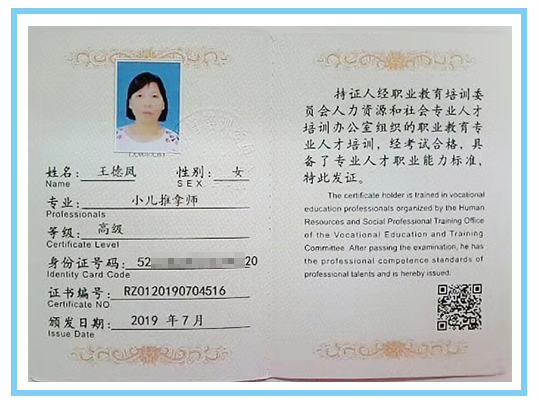 姓名： 王德凤 性别： 女
Name SEX
专业： 小儿推拿师
Professionals
等级： 高级
Certificate Level
身份证号码： 52 20
Identity Card Code
证书编号： RZ0120190704516
Certificate NO
颁发日期： 2019 年 7 月
Issue Date
持证人经职业教育培训委
员会人力资源和社会专业人才
培训办公室组织的职业教育专
业人才培训，经考试合格，具
备了专业人才职业能力标准，
特此发证。
The certificate holder is trained in vocational
education professionals organized by the Human
Resources and Social Professional Training Office
of the Vocational Education and Training
Committee. After passing the examination, he has
the professional competence standards of
professional talents and is hereby issued.